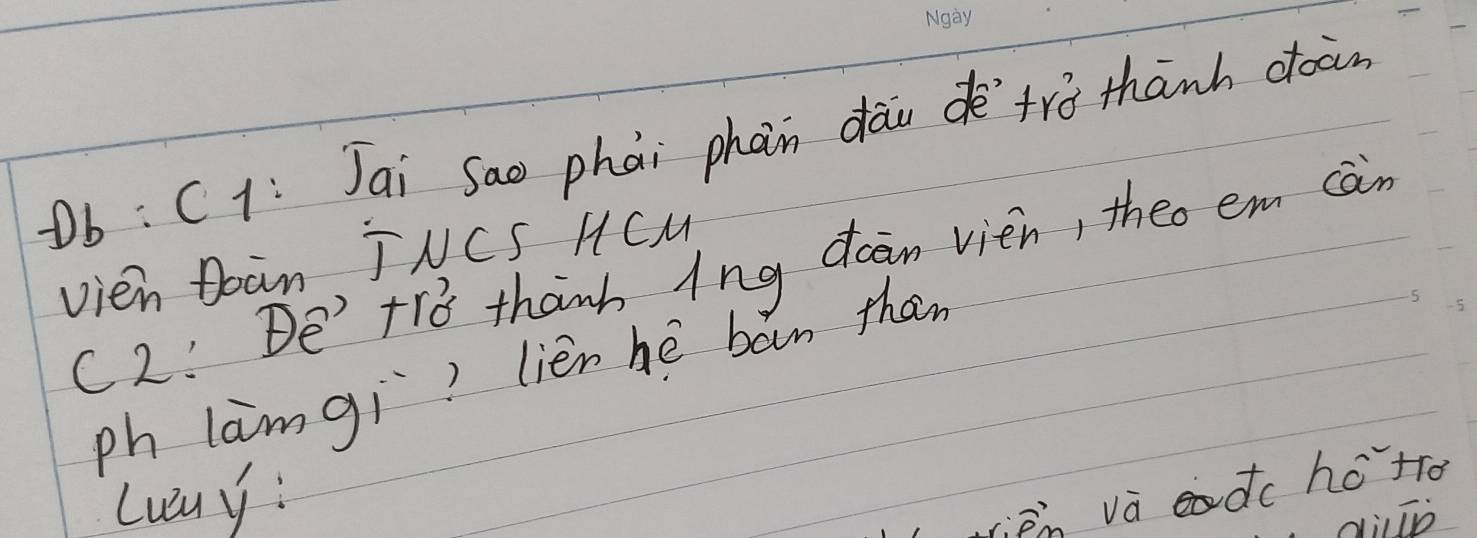 Ngày
Đb: C1: Tại sao phải phấn đấu để trở thành đoàn
viên Đoàn TNCS HCM
C2: Để trở thành 1 ng đoàn viên, theo em cần
ph làm gì? liên hệ bản thân
Lưu ý:
và đc hỗ trợ
giúp